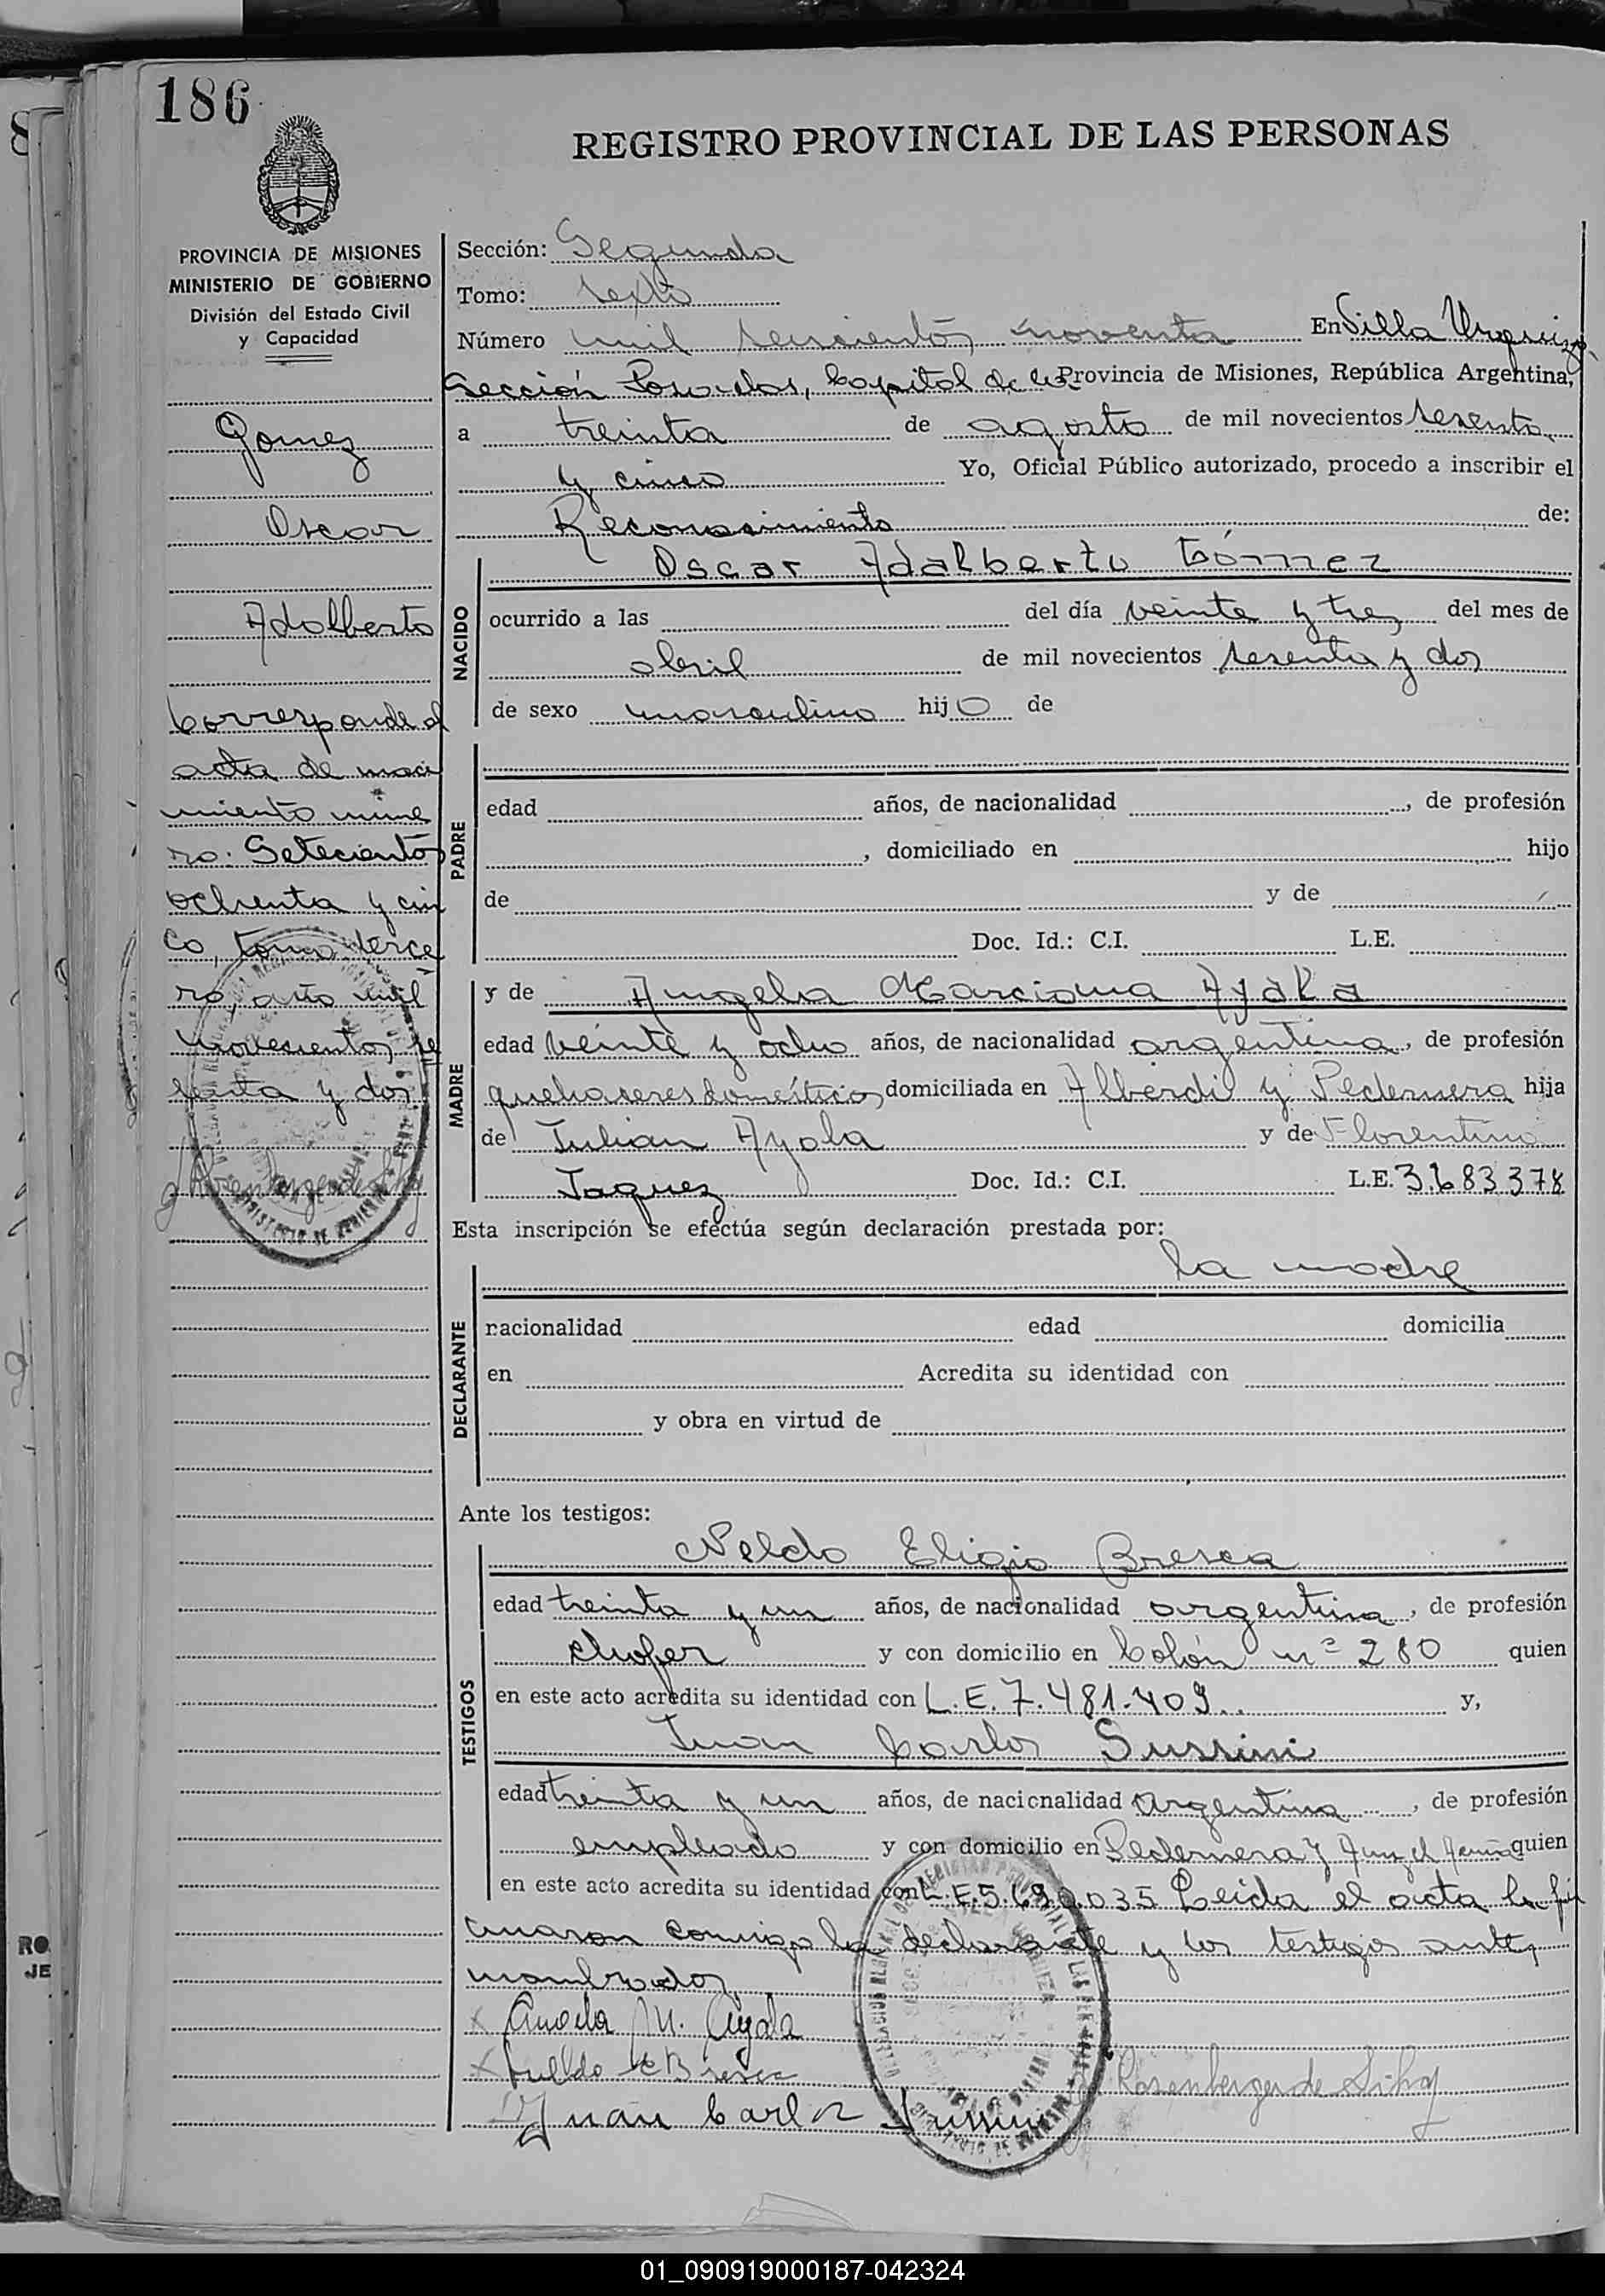 186
REGISTRO PROVINCIAL DE LAS PERSONAS
PROVINCIA DE MISIONES
MINISTERIO DE GOBIERNO
División del Estado Civil
y Capacidad
Gomez
Oscar
Adalberto
Corresponde al
acta de naci
miento núme
ro: Setecientos
ochenta y cin
co, tomo terce
ro, año mil
novecientos se
senta y dos
Sección: Segunda
Tomo: sexto
Número mil seiscientos noventa En Villa Urquiza
Sección Posadas, Capital de la Provincia de Misiones, República Argentina,
a treinta de agosto de mil novecientos sesenta
y cinco Yo, Oficial Público autorizado, procedo a inscribir el
Reconocimiento de:
NACIDO
Oscar Adalberto Gómez
ocurrido a las del día veinte y tres del mes de
abril de mil novecientos sesenta y dos
de sexo masculino hijo de
PADRE
edad años, de nacionalidad , de profesión
, domiciliado en hijo
de y de
Doc. Id.: C.I. L.E.
MADRE
y de Angela Marciana Ayala
edad veinte y ocho años, de nacionalidad argentina, de profesión
quehaseres domésticos domiciliada en Alberdi y Pedernera hija
de Julian Ayala y de Florentina
Jaquez Doc. Id.: C.I. L.E. 3.683.378
Esta inscripción se efectúa según declaración prestada por:
la madre
DECLARANTE
nacionalidad edad domicilia
en Acredita su identidad con
y obra en virtud de
Ante los testigos:
TESTIGOS
Neldo Eligio Bresca
edad treinta y un años, de nacionalidad argentina, de profesión
chofer y con domicilio en Colón nº 280 quien
en este acto acredita su identidad con L.E. 7.481.409 y,
Juan Carlos Sussini
edad treinta y un años, de nacionalidad argentina, de profesión
empleado y con domicilio en Pedernera y quien
en este acto acredita su identidad con L.E. 5.690.035 Leida el acta la fir
maron conmigo la declarante y los testigos ante
nombrados
Angela M. Ayala
Neldo E Bresca
Rosenberger de Silva
Juan Carlos Sussini
RO
JE
01_090919000187-042324